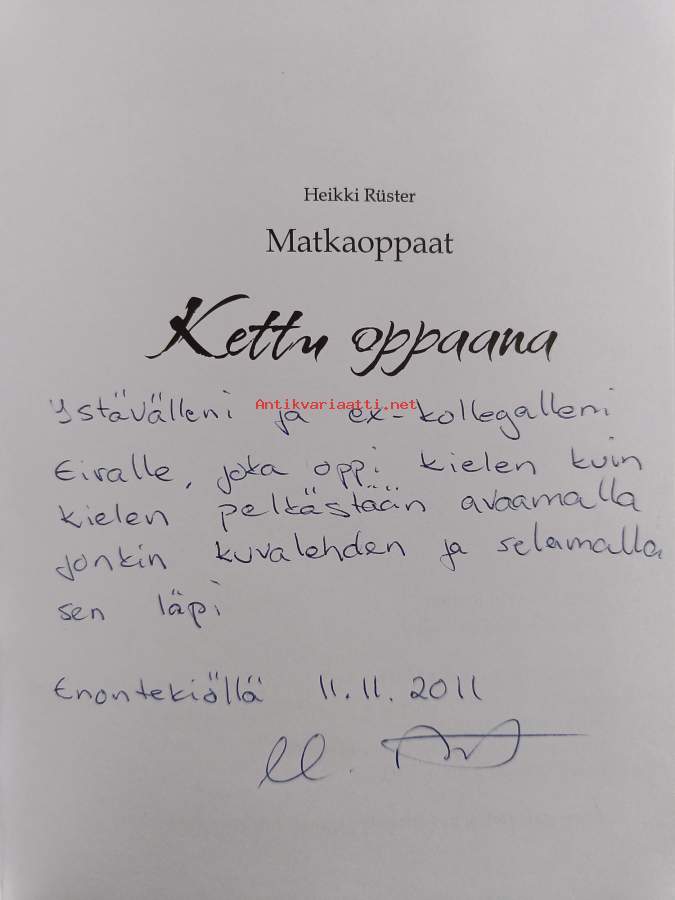 Heikki Rüster
Matkaoppaat
Kettu oppaana
Ystävälleni ja ex-kollegalleni
Antikvariaatti.net
Eiralle, joka oppi kielen kuin
kielen pelkästään avaamalla
jonkin kuvalehden ja selamalla
sen läpi
Enontekiöllä 11.11.2011